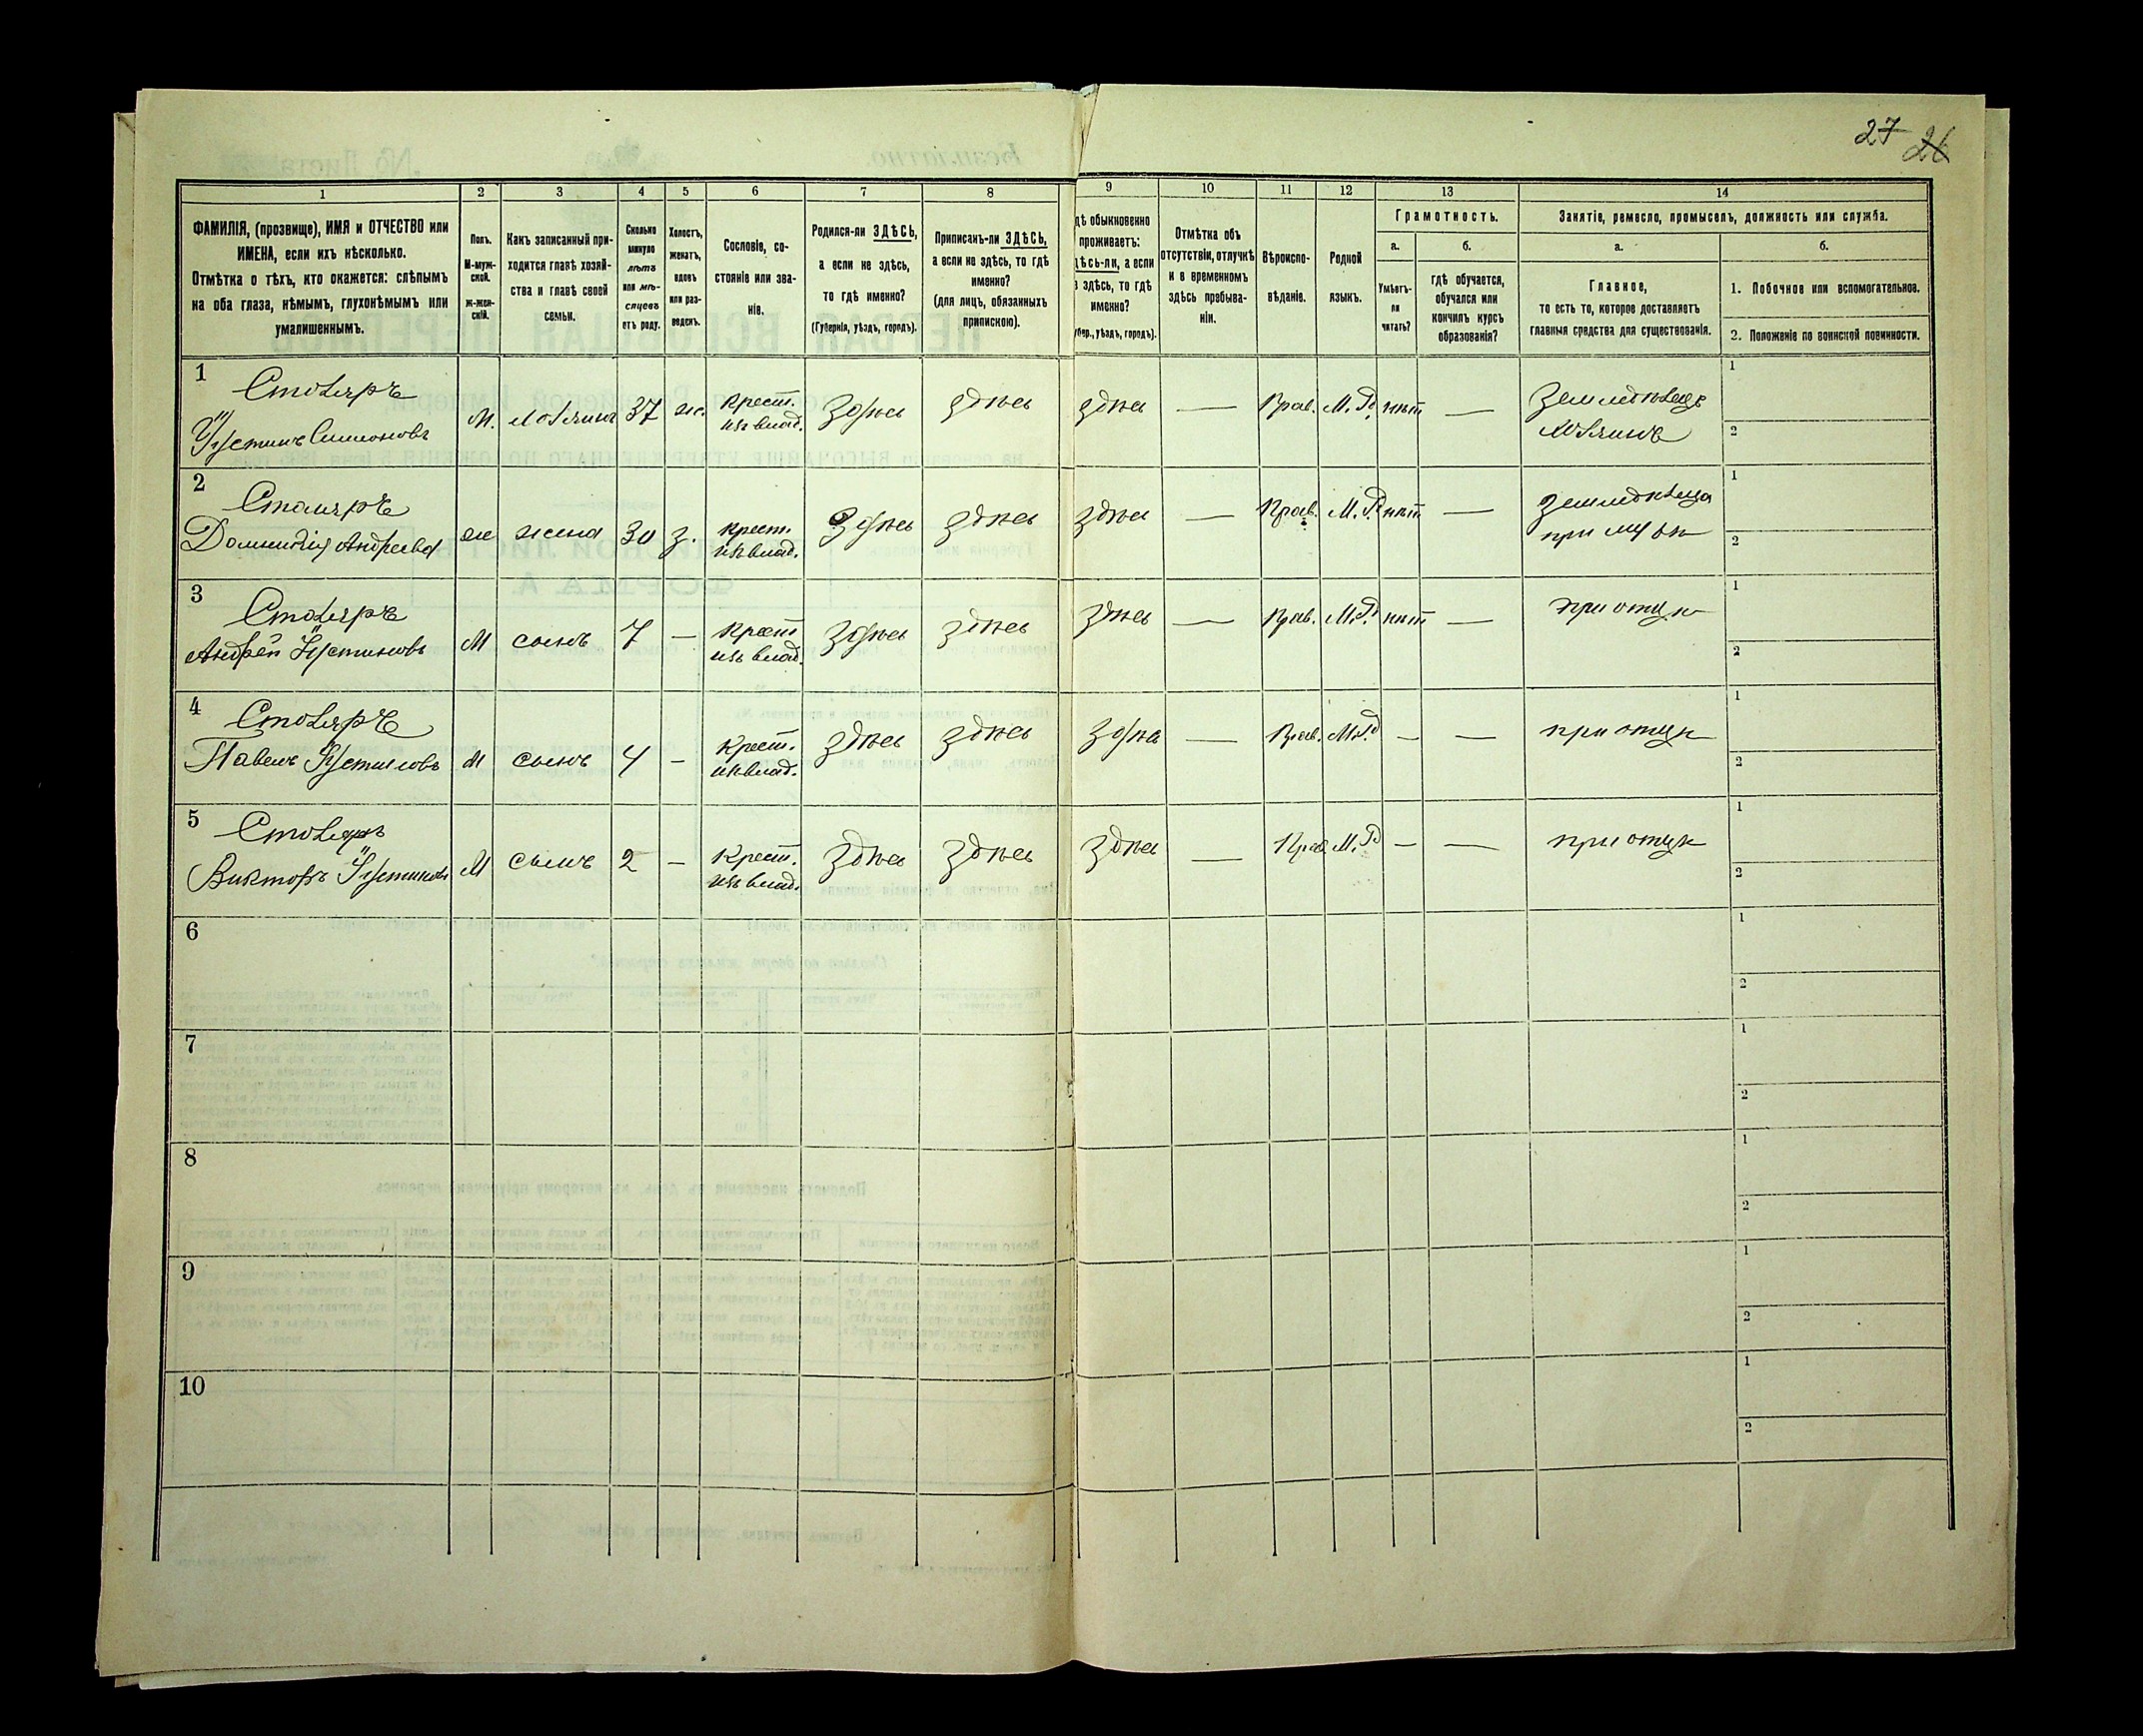 27 26
1 2 3 4 5 6 7 8 9 10 11 12 13 14
ФАМИЛІЯ, (прозвище), ИМЯ и ОТЧЕСТВО или
ИМЕНА, если ихъ нѣсколько.
Отмѣтка о тѣхъ, кто окажется: слѣпымъ
на оба глаза, нѣмымъ, глухонѣмымъ или
умалишеннымъ.
Полъ.
М-муж-
ской.
ж-жен-
скій.
Какъ записанный при-
ходится главѣ хозяй-
ства и главѣ своей
семьи.
Сколько
минуло
лѣтъ
или мѣ-
сяцевъ
отъ роду.
Холостъ,
женатъ,
вдовъ
или раз-
веденъ.
Сословіе, со-
стояніе или зва-
ніе.
Родился-ли ЗДѢСЬ,
а если не здѣсь,
то гдѣ именно?
(Губернія, уѣздъ, городъ).
Приписанъ-ли ЗДѢСЬ,
а если не здѣсь, то гдѣ
именно?
(для лицъ, обязанныхъ
припискою).
дѣ обыкновенно
проживаетъ:
дѣсь-ли, а если
е здѣсь, то гдѣ
именно?
убер., уѣздъ, городъ).
Отмѣтка объ
отсутствіи, отлучкѣ
и в временномъ
здѣсь пребыва-
ніи.
Вѣроиспо-
вѣданіе.
Родной
языкъ.
Грамотность.
а.
Умѣетъ-
ли
читать?
б.
гдѣ обучается,
обучался или
кончилъ курсъ
образованія?
Занятіе, ремесло, промыселъ, должность или служба.
а.
Главное,
то есть то, которое доставляетъ
главныя средства для существованія.
б.
1. Побочное или вспомогательное.
2. Положеніе по воинской повинности.
1 Столяръ
Устинъ Симоновъ М. хозяинъ 37 ж. крест. здѣсь здѣсь здѣсь — Прав. М. нѣт — Земледѣлецъ 1
из влад. хозяинъ 2
2 Столяръ
Домникія Андреева ж жена 30 з. крест. здѣсь здѣсь здѣсь — Прав. М. нѣт — Земледѣлица 1
из влад. при мужѣ 2
3 Столяръ
Андрей Устиновъ М сынъ 7 — крест. здѣсь здѣсь здѣсь — Прав. М. нѣт — при отцѣ 1
из влад. 2
4 Столяръ
Павелъ Устиновъ М сынъ 4 — крест. здѣсь здѣсь здѣсь — Прав. М. — — при отцѣ 1
из влад. 2
5 Столяръ
Викторъ Устиновъ М сынъ 2 — крест. здѣсь здѣсь здѣсь — Прав. М. — — при отцѣ 1
из влад. 2
6 1
2
7 1
2
8 1
2
9 1
2
10 1
2